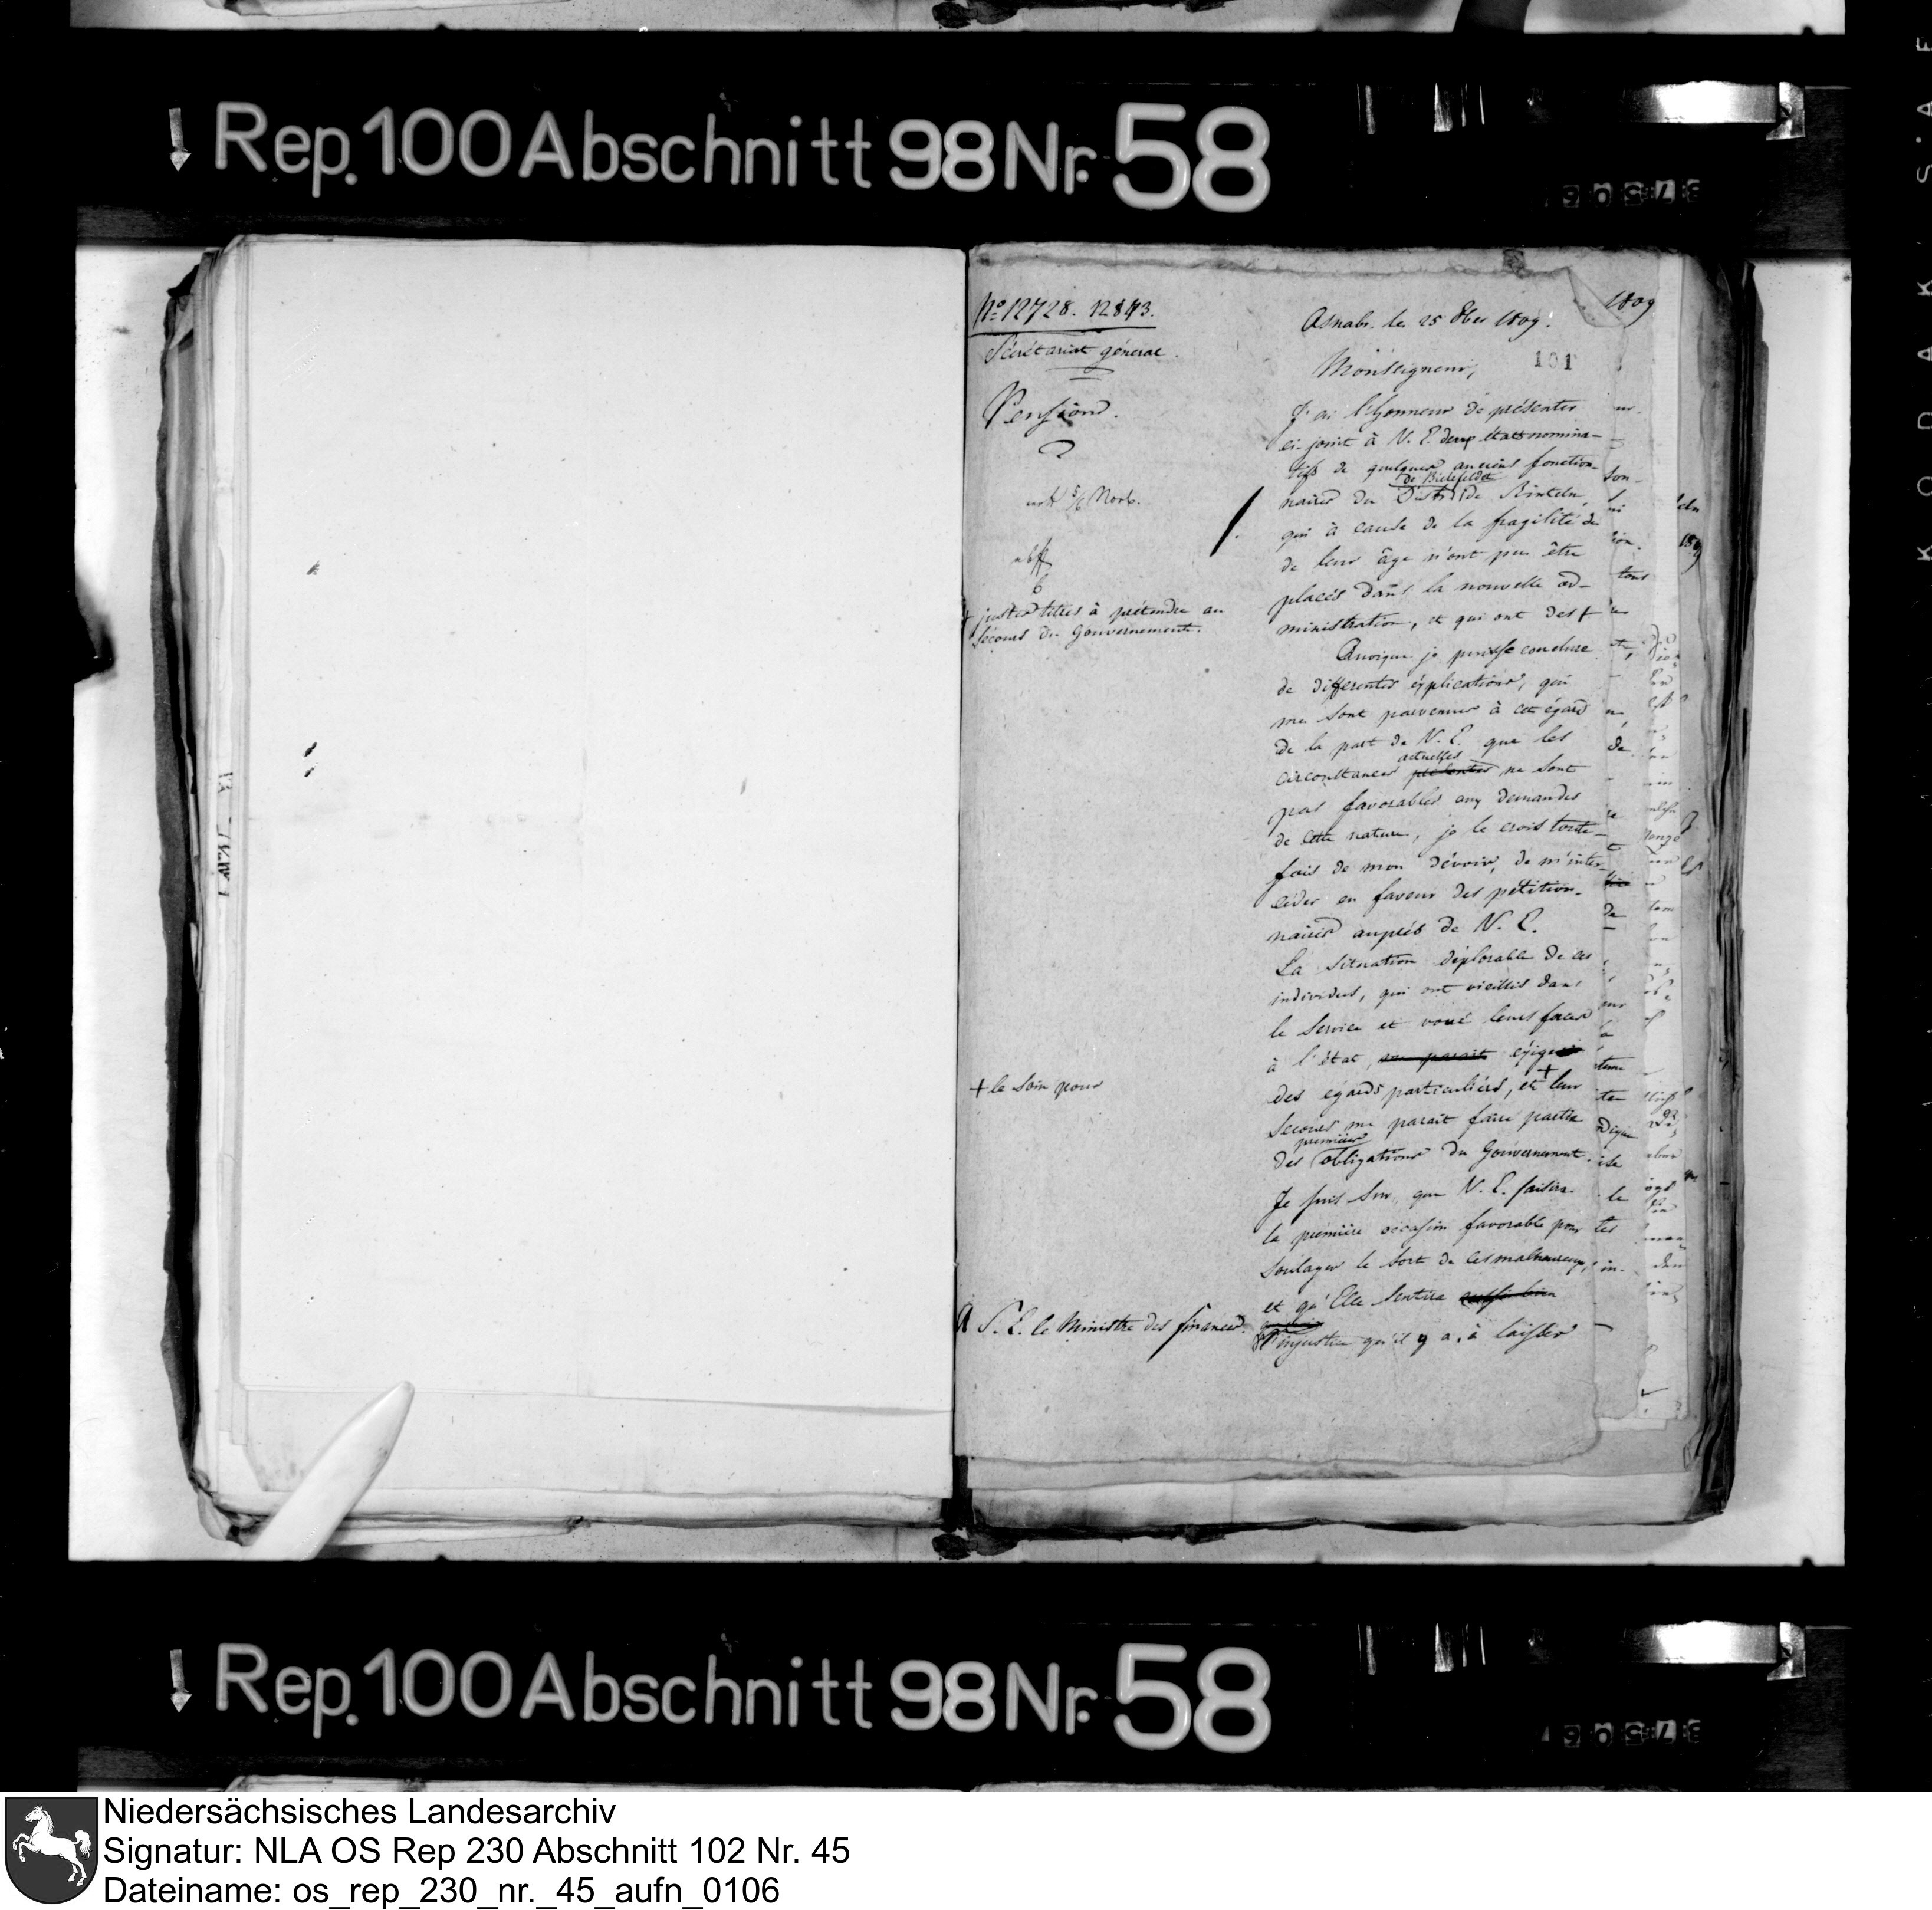 Rep. 100 Abschnitt 98 Nr. 58
No 12728. 12843.
Sécrétariat général.
Pensions.
abff
+ justes titres à prétendre au
sécours du Gouvernement.
+ le soin pour
A S. E. le Ministre des finances.
1809
Osnabr. le 25 8bre 1809.
101
Monseigneur,
J'ai l'honneur de présenter
ci-joint à V. E. deux états nomina-
tifs de quelques anciens fonction-
de Bielefeld et
naires du District de Rinteln,
qui à cause de la fragilité de
de leur âge n'ont pu être
placés dans la nouvelle ad-
ministration, et qui ont des +
Quoique je puisse conclure
de differentes éxplications, qui
me sont parvenues à cet égard
de la part de V. E. que les
actuelles
circonstances présentes ne sont
pas favorables aux demandes
de cette nature, je le crois toute-
fois de mon dévoir, de m'inter-
céder en faveur des pétition-
naires auprès de V. E.
La situation déplorable de ces
individus, qui ont vieillis dans
le service et voué leurs forces
à l'état, me parait exiger
des egards particuliérs, et + leur
secours me parait faire partie
premières
des obligations du Gouvernement.
Je suis sur, que V. E. saisira
la prémière occasion favorable pour
soulager le sort de ces malheureux,
et qu'Elle sentira aussi bien
l'injustice qu'il y a, à laisser
Rep. 100 Abschnitt 98 Nr. 58
Niedersächsisches Landesarchiv
Signatur: NLA OS Rep 230 Abschnitt 102 Nr. 45
Dateiname: os_rep_230_nr._45_aufn_0106